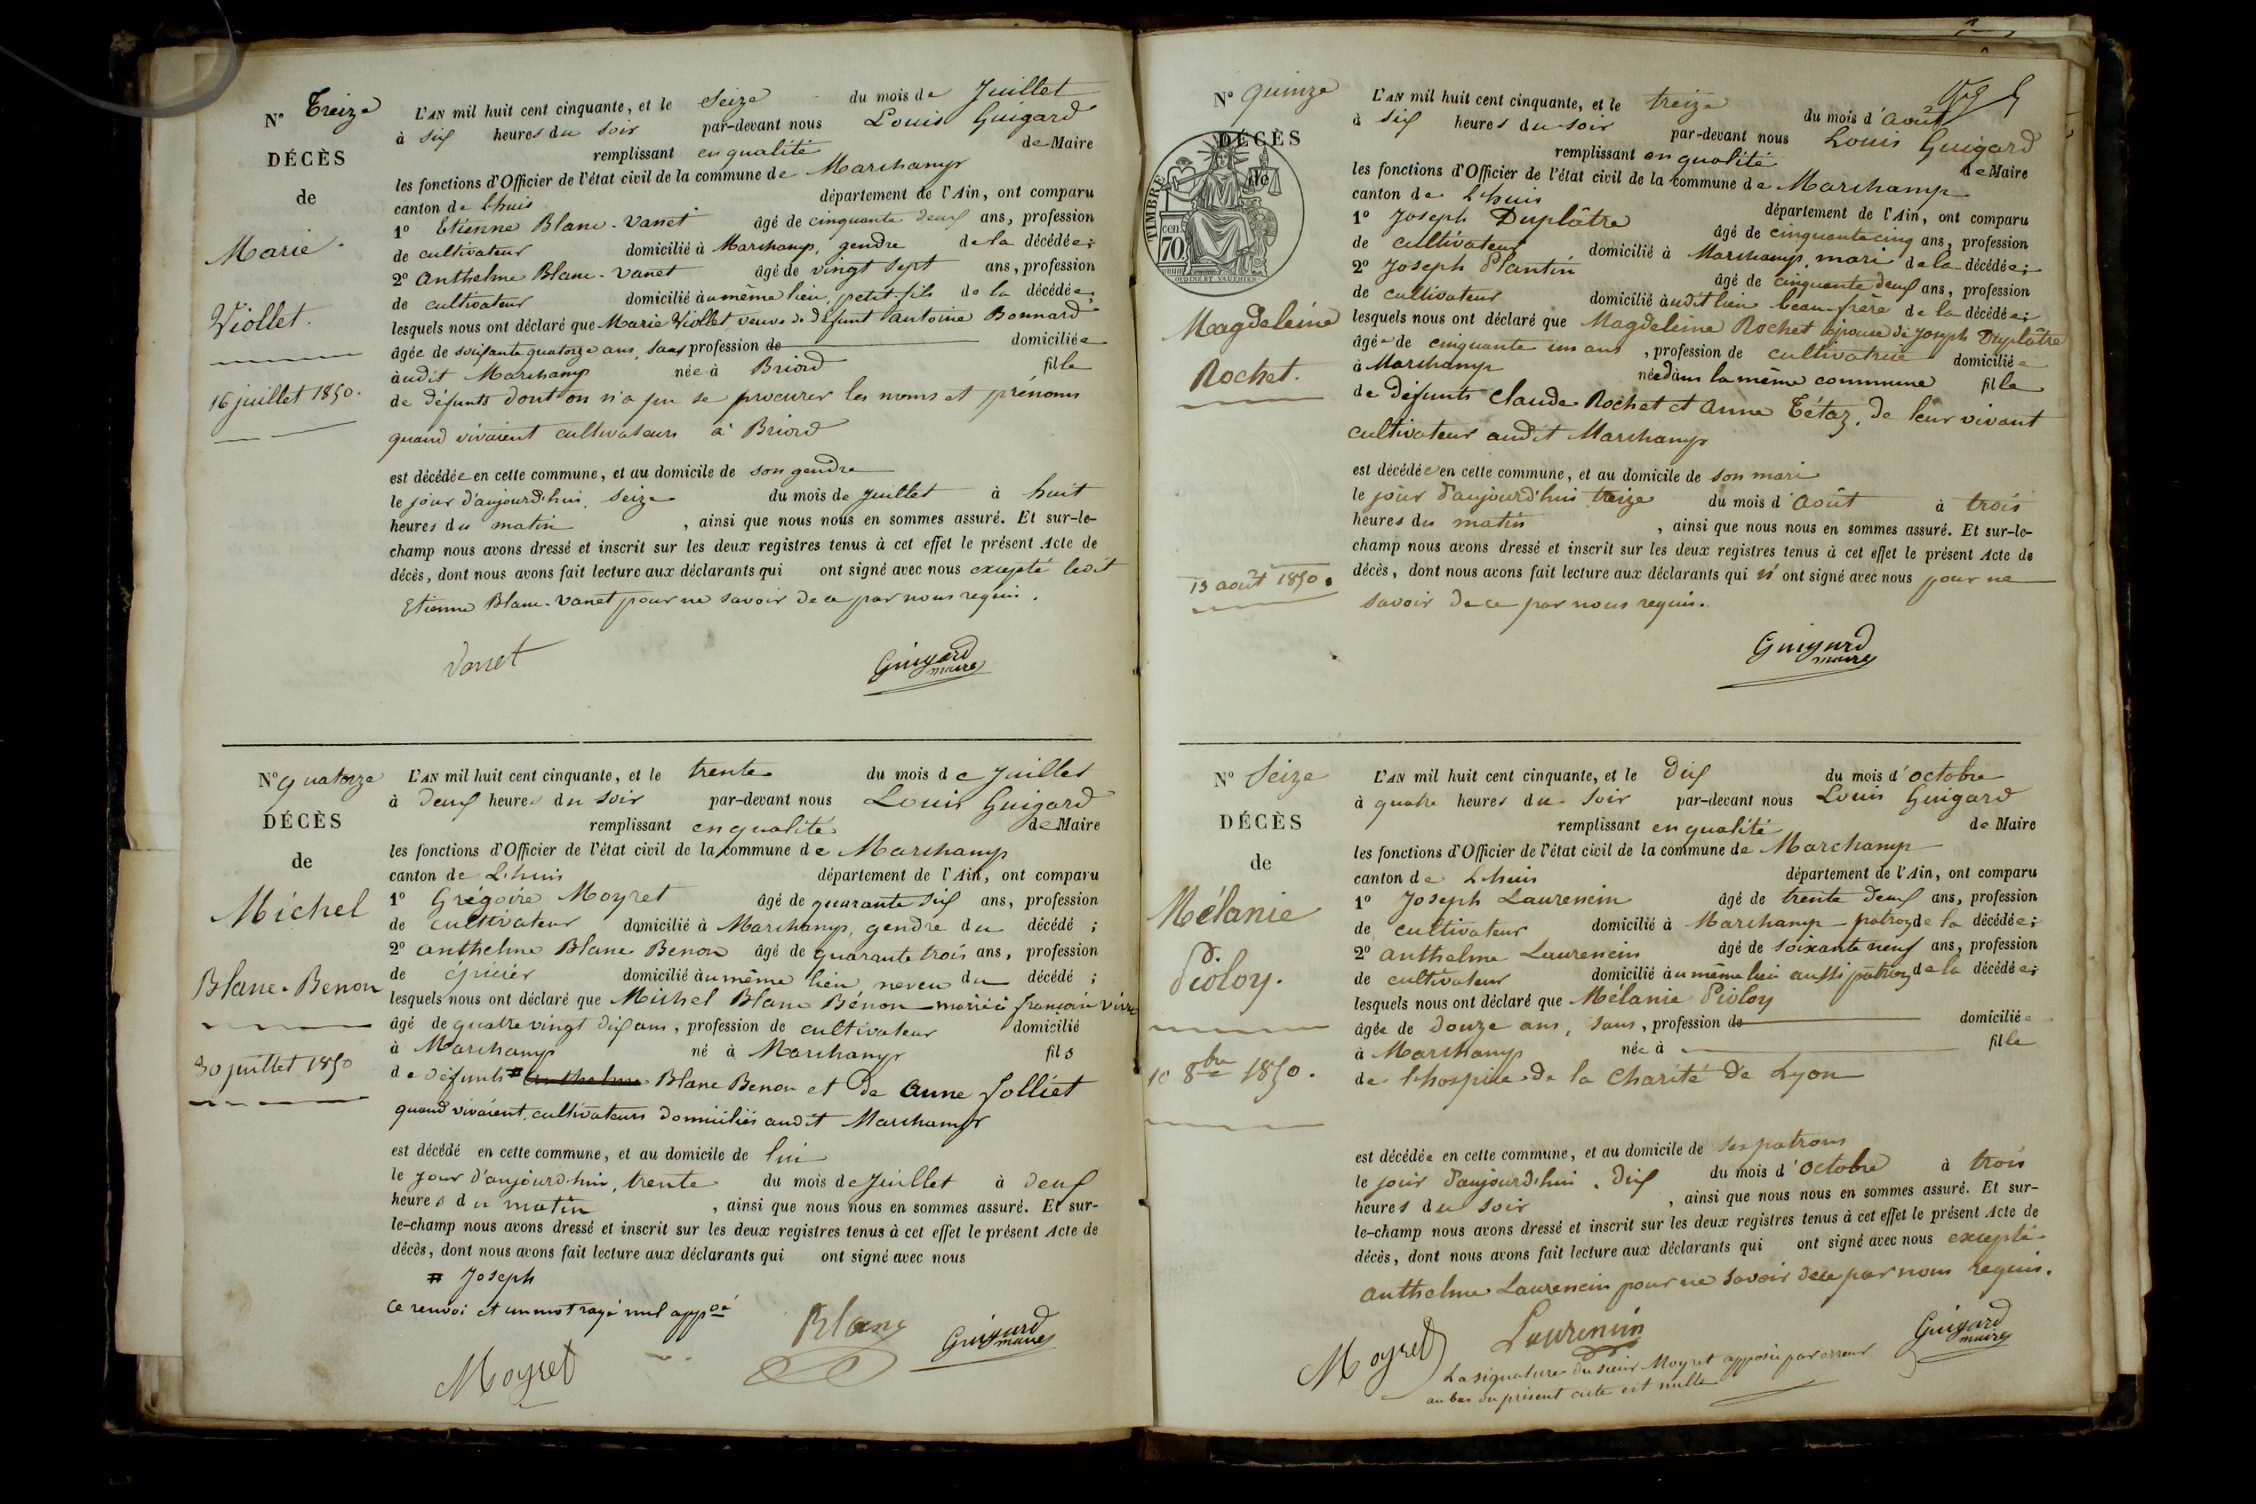 N° Treize
DÉCÈS
de
Marie
Viollet.
16 juillet 1850.
L'AN mil huit cent cinquante, et le seize du mois de Juillet
à six heures du soir par-devant nous Louis Guigard
remplissant en qualité de Maire
les fonctions d'Officier de l'état civil de la commune de Marchamp
canton de Lhuis département de l'Ain, ont comparu
1° Etienne Blanc-Vanet âgé de cinquante deux ans, profession
de cultivateur domicilié à Marchamp, gendre de la décédée;
2° Anthelme Blanc-Vanet âgé de vingt sept ans, profession
de cultivateur domicilié au même lieu, petit-fils de la décédée,
lesquels nous ont déclaré que Marie Viollet veuve de défunt Antoine Bonnard
âgée de soixante quatorze ans, sans profession de domiciliée
audit Marchamp née à Briord fille
de défunts dont on n'a pu se procurer les noms et prénoms
quand vivaient cultivateurs à Briord
est décédée en cette commune, et au domicile de son gendre
le jour d'aujourd'hui, seize du mois de Juillet à huit
heures du matin, ainsi que nous nous en sommes assuré. Et sur-le-
champ nous avons dressé et inscrit sur les deux registres tenus à cet effet le présent Acte de
décès, dont nous avons fait lecture aux déclarants qui ont signé avec nous excepté ledit
Etienne Blanc-Vanet pour ne savoir de ce par nous requis.
Vanet
Guigard
maire
N° quatorze
DÉCÈS
de
Michel
Blanc-Benon
30 juillet 1850
L'AN mil huit cent cinquante, et le trente du mois de Juillet
à deux heures du soir par-devant nous Louis Guigard
remplissant en qualité de Maire
les fonctions d'Officier de l'état civil de la commune de Marchamp
canton de Lhuis département de l'Ain, ont comparu
1° Grégoire Moyret âgé de quarante six ans, profession
de cultivateur domicilié à Marchamp, gendre du décédé ;
2° Anthelme Blanc Benon âgé de quarante trois ans, profession
de épicier domicilié au même lieu neveu du décédé ;
lesquels nous ont déclaré que Michel Blanc Bénon marié à françoise
âgé de quatre vingt dix ans, profession de cultivateur domicilié
à Marchamp né à Marchamp fils
de défunts # Anthelme Blanc Benon et de Anne Solliet
quand vivaient, cultivateurs domiciliés audit Marchamp
est décédé en cette commune, et au domicile de lui
le jour d'aujourd'hui, trente du mois de Juillet à deux
heures du matin, ainsi que nous nous en sommes assuré. Et sur-
le-champ nous avons dressé et inscrit sur les deux registres tenus à cet effet le présent Acte de
décès, dont nous avons fait lecture aux déclarants qui ont signé avec nous
# Joseph
ce renvoi et un mot rayé nul appoé
Moyret
Blanc
Guigard
maire
N° quinze
DÉCÈS
de
TIMBRE
70
cen
ORDINE ET VALENTES
Magdeleine
Rochet.
13 août 1850.
L'AN mil huit cent cinquante, et le treize du mois d'août
à six heures du soir par-devant nous Louis Guigard
remplissant en qualité de Maire
les fonctions d'Officier de l'état civil de la commune de Marchamp
canton de Lhuis département de l'Ain, ont comparu
1° Joseph Duplâtre âgé de cinquante cinq ans, profession
de cultivateur domicilié à Marchamp, mari de la décédée;
2° Joseph Plantin âgé de cinquante deux ans, profession
de cultivateur domicilié audit lieu beau-frère de la décédée;
lesquels nous ont déclaré que Magdeleine Rochet épouse de Joseph Duplâtre
âgée de cinquante un ans, profession de cultivatrice domiciliée
à Marchamp née dans la même commune fille
de défunts Claude Rochet et Anne Tétaz, de leur vivant
cultivateur audit Marchamp
est décédée en cette commune, et au domicile de son mari
le jour d'aujourd'hui treize du mois d'Août à trois
heures du matin, ainsi que nous nous en sommes assuré. Et sur-le-
champ nous avons dressé et inscrit sur les deux registres tenus à cet effet le présent Acte de
décès, dont nous avons fait lecture aux déclarants qui n'ont signé avec nous pour ne
savoir de ce par nous requis.
Guigard
maire
N° Seize
DÉCÈS
de
Mélanie
Pioloy.
10 8bre 1850.
L'AN mil huit cent cinquante, et le dix du mois d'octobre
à quatre heures du soir par-devant nous Louis Guigard
remplissant en qualité de Maire
les fonctions d'Officier de l'état civil de la commune de Marchamp
canton de Lhuis département de l'Ain, ont comparu
1° Joseph Laurencin âgé de trente deux ans, profession
de cultivateur domicilié à Marchamp patron de la décédée;
2° Anthelme Laurencin âgé de soixante neuf ans, profession
de cultivateur domicilié au même lieu aussi patron de la décédée;
lesquels nous ont déclaré que Mélanie Pioloy
âgée de douze ans, sans, profession de domiciliée
à Marchamp née à fille
de l'hospice de la Charité de Lyon
est décédée en cette commune, et au domicile de ses patrons
le jour d'aujourd'hui, dix du mois d'Octobre à trois
heures du soir, ainsi que nous nous en sommes assuré. Et sur-
le-champ nous avons dressé et inscrit sur les deux registres tenus à cet effet le présent Acte de
décès, dont nous avons fait lecture aux déclarants qui ont signé avec nous excepté
Anthelme Laurencin pour ne savoir de ce par nous requis.
Moyret
Laurencin
Guigard
maire
La signature du sieur Moyret apposée par erreur
au bas du présent acte est nulle